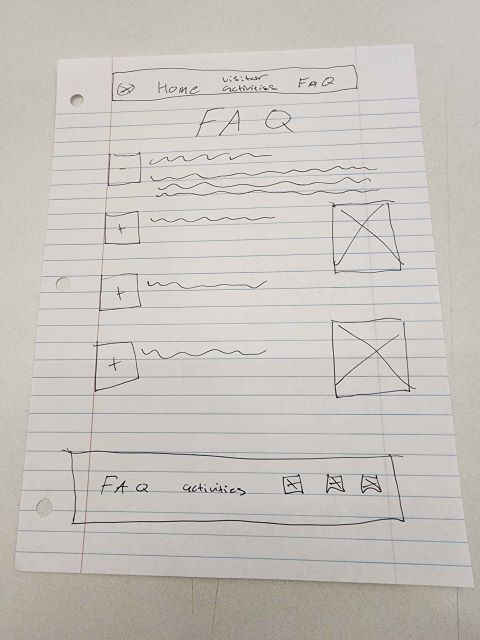 Home visitor activities FAQ
FAQ
-
+
+
+
FAQ activities